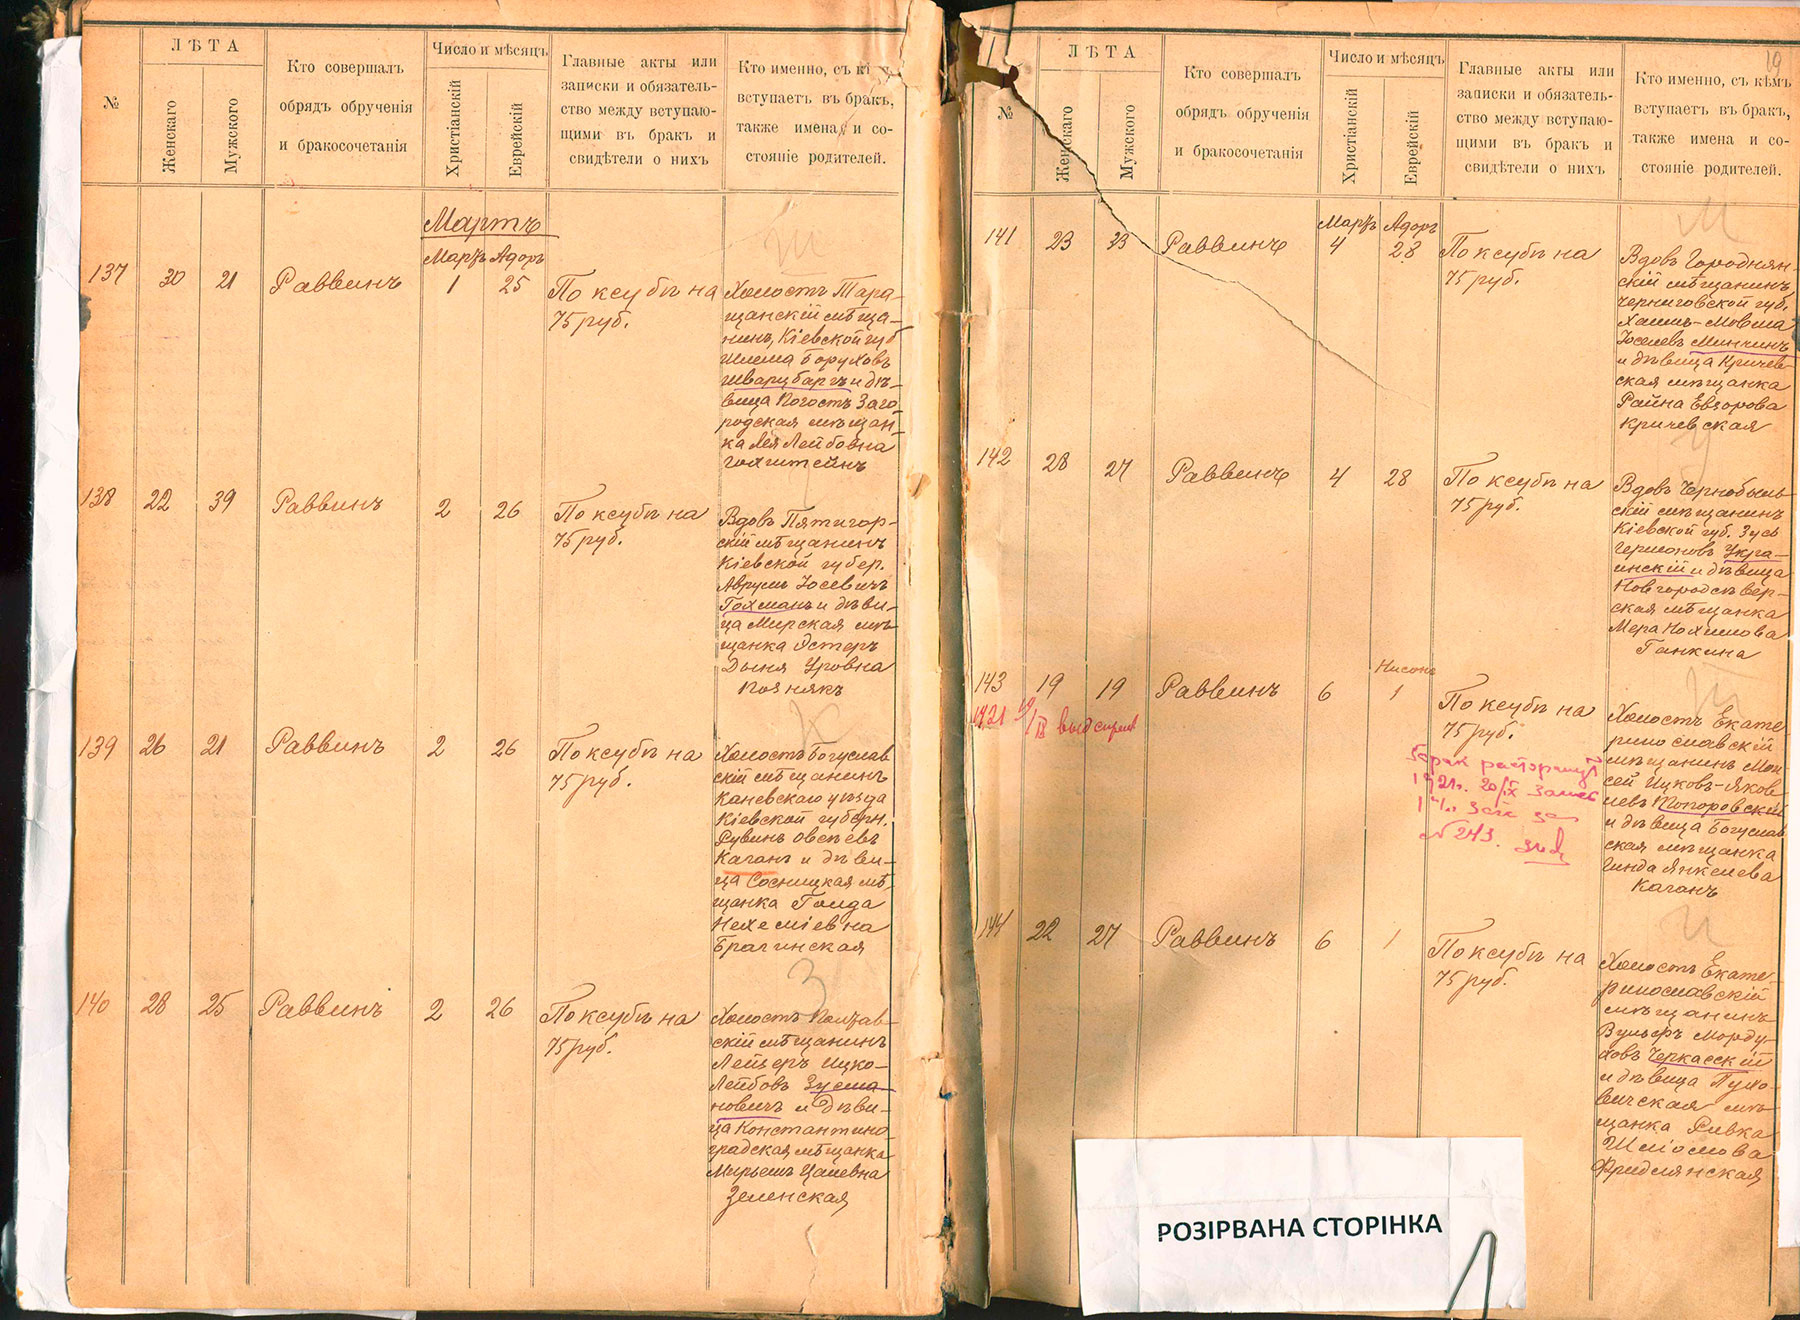 №
ЛѢТА
Женскаго
Мужского
Кто совершалъ
обрядъ обрученія
и бракосочетанія
Число и мѣсяцъ
Христіанскій
Еврейскій
Главные акты или
записки и обязатель-
ство между вступаю-
щими въ бракъ и
свидѣтели о нихъ
Кто именно, съ кѣмъ
вступаетъ въ бракъ,
также имена и со-
стояніе родителей.
Мартъ
Мартъ Адоръ
137 30 21 Раввинъ 1 25
По ксубѣ на
75 руб.
Холостъ Тара-
щанскій мѣща-
нинъ, Кіевской губ
Шлема Боруховъ
Шварцбаргъ и дѣ-
вица Погостъ Заго-
родская мѣщан-
ка Лея Лейбовна
Гохштейнъ
138 22 39 Раввинъ 2 26
По ксубѣ на
75 руб.
Вдовъ Пятигор-
скій мѣщанинъ
Кіевской губер.
Аврумъ Іосевичъ
Гохманъ и дѣви-
ца Мирская мѣ-
щанка Эстеръ
Дыня Уровна
Познякъ
139 26 21 Раввинъ 2 26
По ксубѣ на
75 руб.
К
Холостъ Богуслав
скій мѣщанинъ
Каневскаго уѣзда
Кіевской губерн.
Рувинъ Овсѣевъ
Каганъ и дѣви-
ца Сосницкая мѣ
щанка Голда
Нехеміевна
Брагинская
140 28 25 Раввинъ 2 26
По ксубѣ на
75 руб.
З
Холостъ Полтав-
скій мѣщанинъ
Лейзеръ Ицко-
Лейбовъ Зусма-
новичъ и дѣви-
ца Константино
градская мѣщанка
Мирьемъ Цалевна
Зеленская
19
№
ЛѢТА
Женскаго
Мужского
Кто совершалъ
обрядъ обрученія
и бракосочетанія
Число и мѣсяцъ
Христіанскій
Еврейскій
Главные акты или
записки и обязатель-
ство между вступаю-
щими въ бракъ и
свидѣтели о нихъ
Кто именно, съ кѣмъ
вступаетъ въ бракъ,
также имена и со-
стояніе родителей.
Мартъ Адоръ
141 23 33 Раввинъ 4 28
По ксубѣ на
75 руб.
М
Вдовъ Городнян-
скій мѣщанинъ,
Черниговской губ.
Хаимъ-Мовша
Іоселевъ Минчинъ
и дѣвица Кричев-
ская мѣщанка
Райна Евзорова
Кричевская
142 28 27 Раввинъ 4 28
По ксубѣ на
75 руб.
У
Вдовъ Чернобыль-
скій мѣщанинъ
Кіевской губ. Зусь
Гершоновъ Укра-
инскій и дѣвица
Новгородсѣвер-
ская мѣщанка
Мера Нохимова
Ганкина
Нисонъ
143 19 19 Раввинъ 6 1
По ксубѣ на
75 руб.
Холостъ Екате
ринославскій
мѣщанинъ Мои
сей Ицковъ-Яков
левъ Топоровскій
и дѣвица Богуслав
ская мѣщанка
Гинда Янкелева
Каганъ
1921
брак расторгнут
1921г. 20/IX
№ 243.
144 22 27 Раввинъ 6 1
По ксубѣ на
75 руб.
Холостъ Екате
ринославскій
мѣщанинъ
Вульфъ Морду-
ховъ Черкасскій
и дѣвица Пухо-
вичская мѣ-
щанка Ривка
Шліомова
Фридлянская
РОЗІРВАНА СТОРІНКА